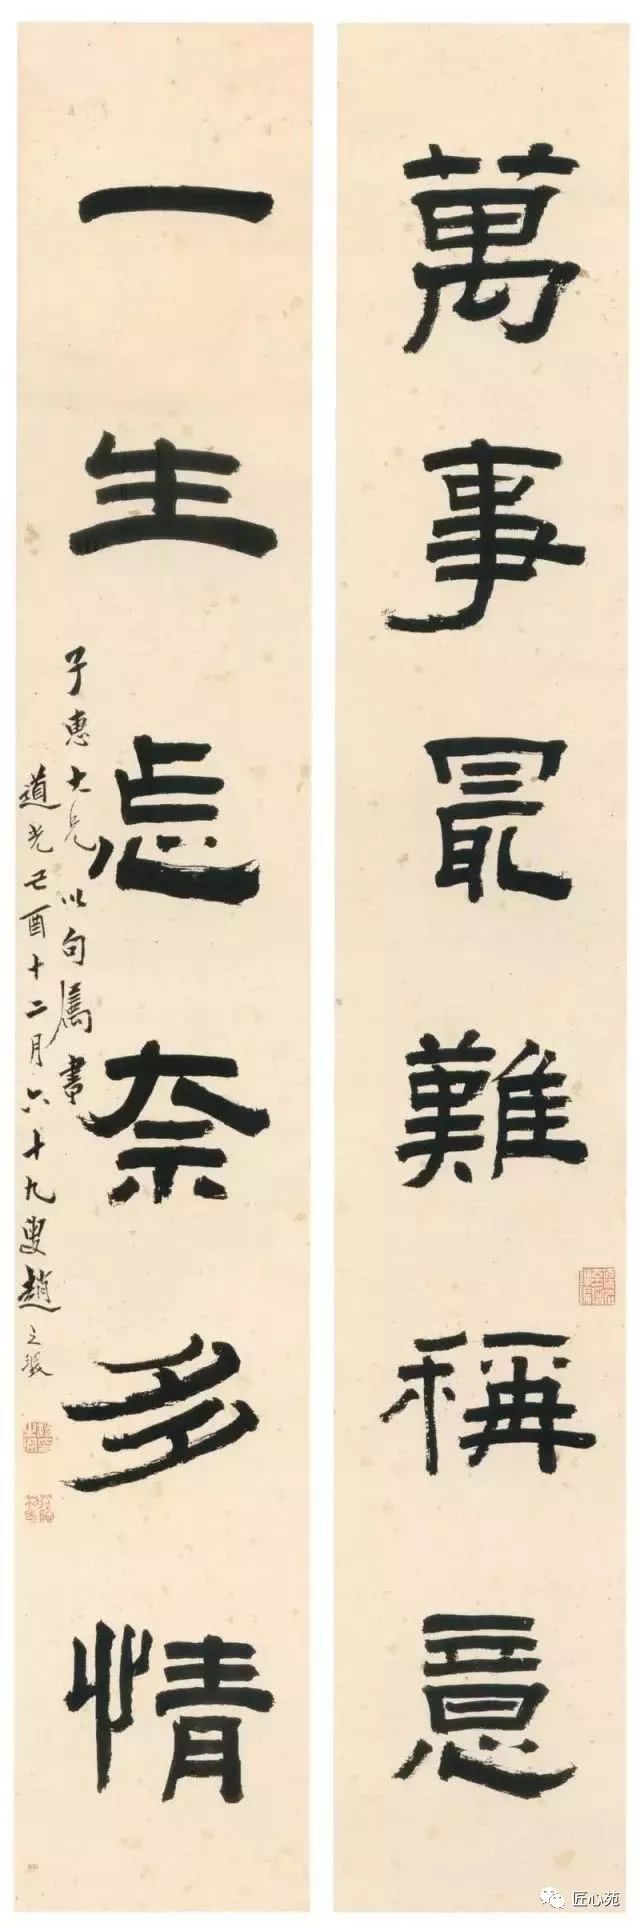 萬事最難稱意
一生怎奈多情
子惠大兄以句属書
道光己酉十二月六十九叟趙之琛
匠心苑